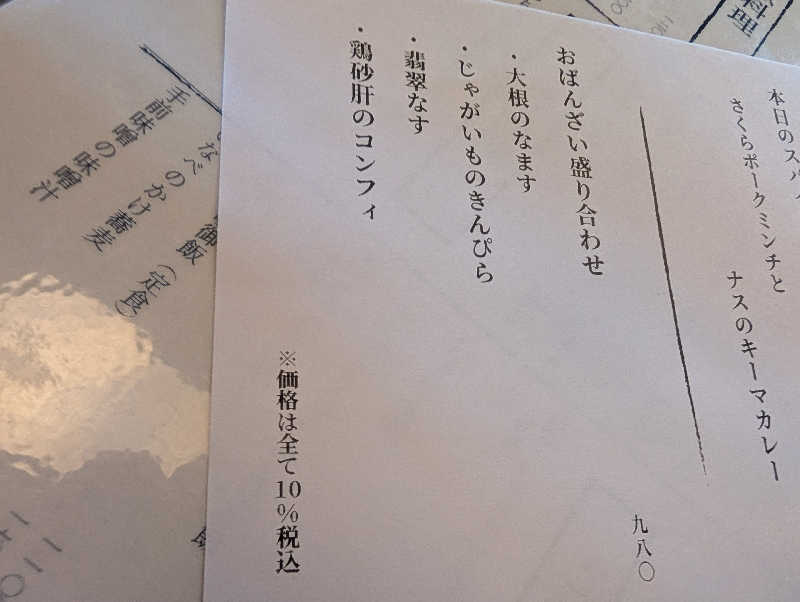 本日のスパ
さくらポークミンチと
ナスのキーマカレー
おばんざい盛り合わせ
九八〇
・大根のなます
・じゃがいものきんぴら
・翡翠なす
・鶏砂肝のコンフィ
※価格は全て10%税込
料理
御飯（定食）
なべのかけ蕎麦
手前味噌の味噌汁